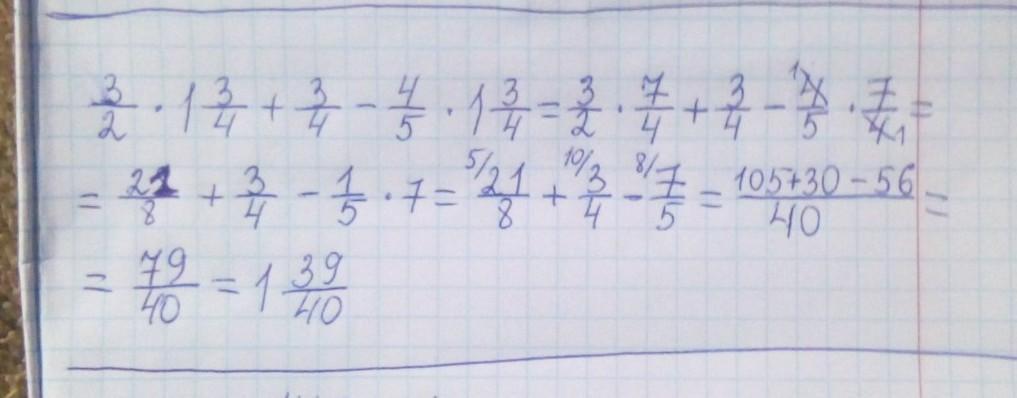 3/2 · 1 3/4 + 3/4 - 4/5 · 1 3/4 = 3/2 · 7/4 + 3/4 - ¹4/5 · 7/4₁ =
= 21/8 + 3/4 - 1/5 · 7 = ⁵/21/8 + ¹⁰/3/4 - ⁸/7/5 = 105+30-56/40 =
= 79/40 = 1 39/40